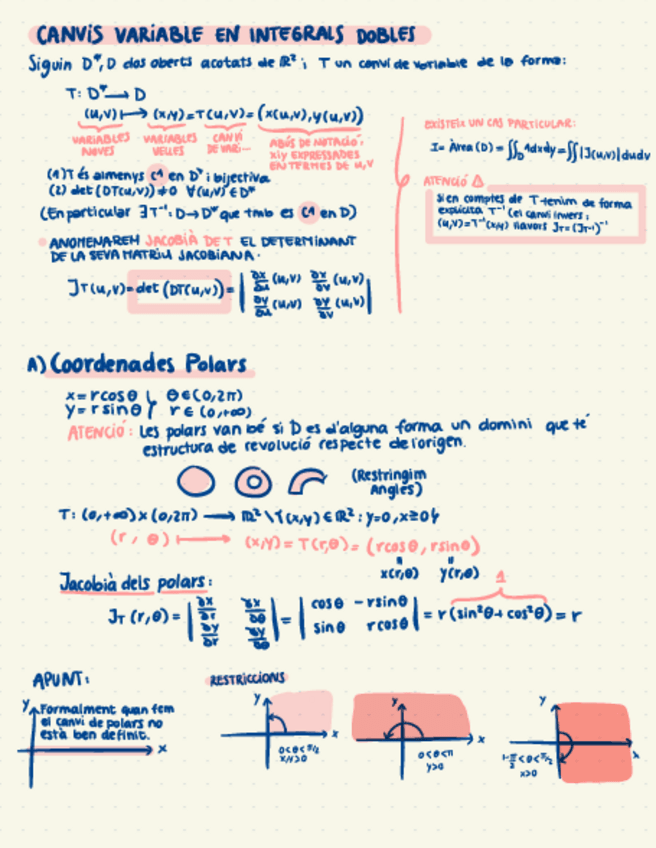 CANVIS VARIABLE EN INTEGRALS DOBLES
Siguin D*, D dos oberts acotats de ℝ² i T un canvi de variable de la forma:
T: D* → D
(u,v) ↦ (x,y) = T(u,v) = (x(u,v), y(u,v))
VARIABLES NOVES
VARIABLES VELLES
CANVI DE VARI...
ABÚS DE NOTACIÓ: x i y EXPRESSADES EN TERMES DE u,v
(1) T és almenys C¹ en D* i bijectiva
(2) det (DT(u,v)) ≠ 0 ∀(u,v) ∈ D*
(En particular ∃ T⁻¹: D → D* que tmb es C¹ en D)
ANOMENAREM JACOBIÀ DE T EL DETERMINANT
DE LA SEVA MATRIU JACOBIANA.
J_T(u,v) = det (DT(u,v)) = | ∂x/∂u (u,v) ∂x/∂v (u,v) |
| ∂y/∂u (u,v) ∂y/∂v (u,v) |
EXISTEIX UN CAS PARTICULAR:
I = Àrea (D) = ∬_D 1dxdy = ∬ |J(u,v)| dudv
ATENCIÓ ⚠
Si en comptes de T tenim de forma
explícita T⁻¹ (el canvi invers:
(u,v) = T⁻¹(x,y) llavors J_T = (J_T⁻¹)⁻¹
A) Coordenades Polars
x = r cos θ } θ ∈ (0, 2π)
y = r sin θ } r ∈ (0, +∞)
ATENCIÓ: Les polars van bé si D es d'alguna forma un domini que té
estructura de revolució respecte de l'origen.
(Restringim
Angles)
T: (0,+∞) x (0,2π) → ℝ² \ {(x,y) ∈ ℝ²: y=0, x≥0}
(r, θ) ↦ (x,y) = T(r,θ) = (r cos θ, r sin θ)
x(r,θ) y(r,θ)
Jacobià dels polars:
J_T (r,θ) = | ∂x/∂r ∂x/∂θ | = | cos θ - r sin θ | = r (sin²θ + cos²θ) = r
| ∂y/∂r ∂y/∂θ | | sin θ r cos θ |
1
APUNT:
Formalment quan fem
el canvi de polars no
està ben definit.
y
x
RESTRICCIONS
y
x
0 < θ < π/2
x,y > 0
y
x
0 < θ < π
y > 0
y
x
-π/2 < θ < π/2
x > 0